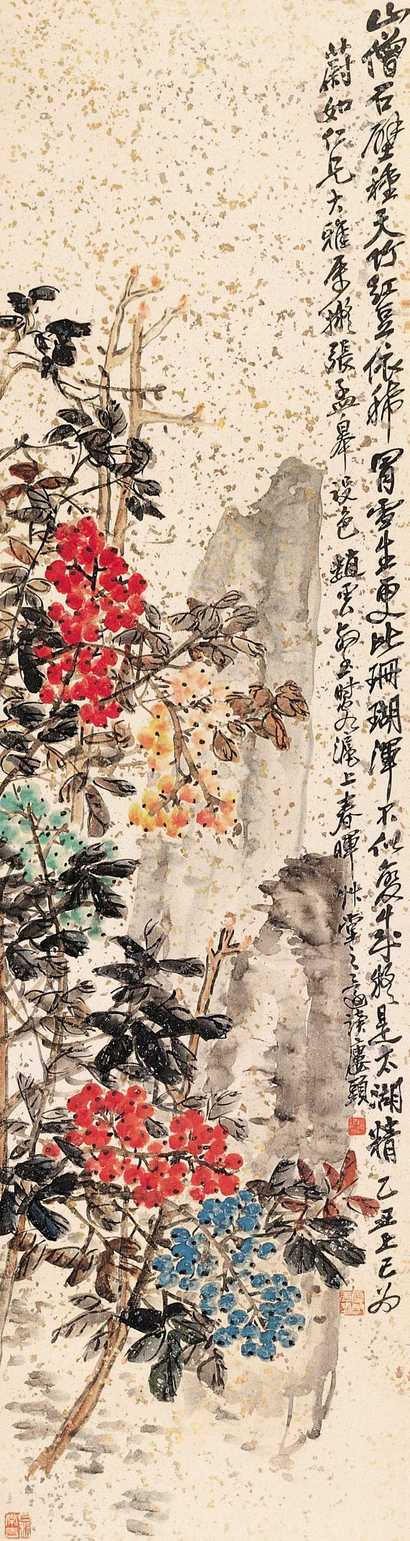 山僧石壁種天竹紅豆依稀冒雪生更比珊瑚渾不似變成疑是太湖精 乙丑上巳為
蔚如仁兄大雅屬擬張孟皋設色 趙雲壑時客滬上春暉艸堂之讀樓頭